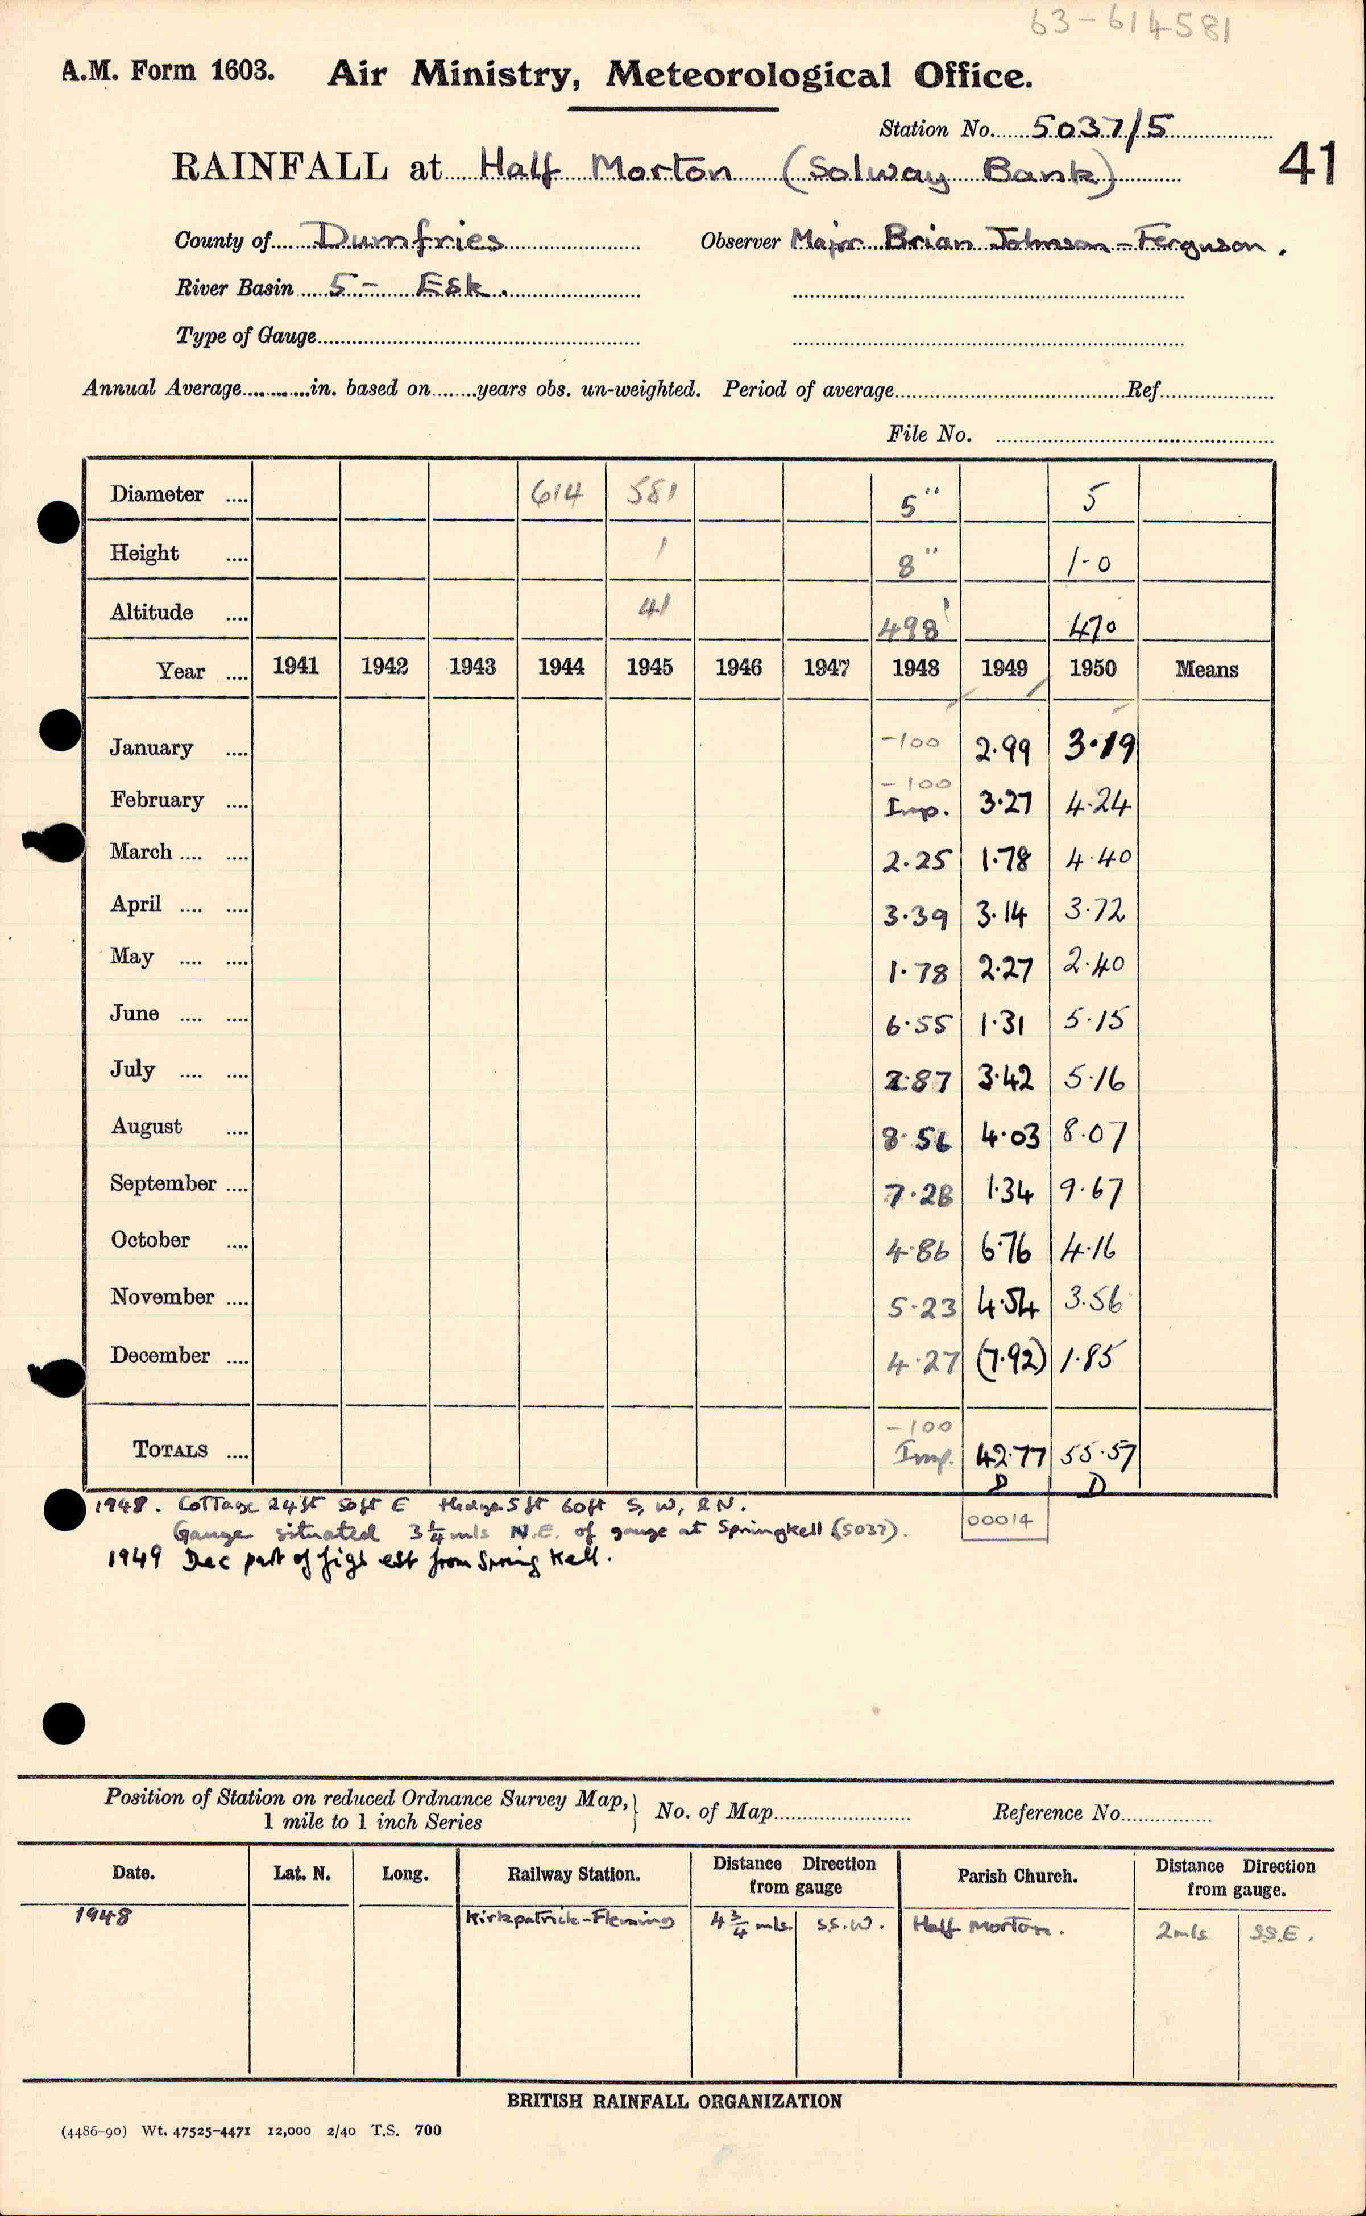 63-614581
A.M. Form 1603. Air Ministry, Meteorological Office.
Station No. 5037/5
RAINFALL at Half Morton (Solway Bank) 41
County of Dumfries Observer Major Brian Johnson-Ferguson.
River Basin 5- Esk.
Type of Gauge
Annual Average in. based on years obs. un-weighted. Period of average Ref
File No.
Diameter 614 581 5" 5
Height 1 8" 1-0
Altitude 41 498' 470
Year 1941 1942 1943 1944 1945 1946 1947 1948 1949 1950 Means
January -100 2.99 3.19
February -100 Imp. 3.27 4.24
March 2.25 1.78 4.40
April 3.39 3.14 3.72
May 1.78 2.27 2.40
June 6.55 1.31 5.15
July 2.87 3.42 5.16
August 8.56 4.03 8.07
September 7.28 1.34 9.67
October 4.86 6.76 4.16
November 5.23 4.54 3.56
December 4.27 (7.92) 1.85
TOTALS -100 Imp. 42.77 55.57
D D
1948. Cottage 24ft 50ft E Hedge 5ft 60ft S, W, & N.
Gauge situated 3¼ mls N.E. of gauge at Springkell (5037). 00014
1949 Dec part of figs est from Spring Kell.
Position of Station on reduced Ordnance Survey Map, 1 mile to 1 inch Series No. of Map Reference No.
Date. Lat. N. Long. Railway Station. Distance Direction from gauge Parish Church. Distance Direction from gauge.
1948 Kirkpatrick-Fleming 4¾ mls. S.S.W. Half Morton. 2mls S.S.E.
BRITISH RAINFALL ORGANIZATION
(4486-90) Wt. 47525-4471 12,000 2/40 T.S. 700